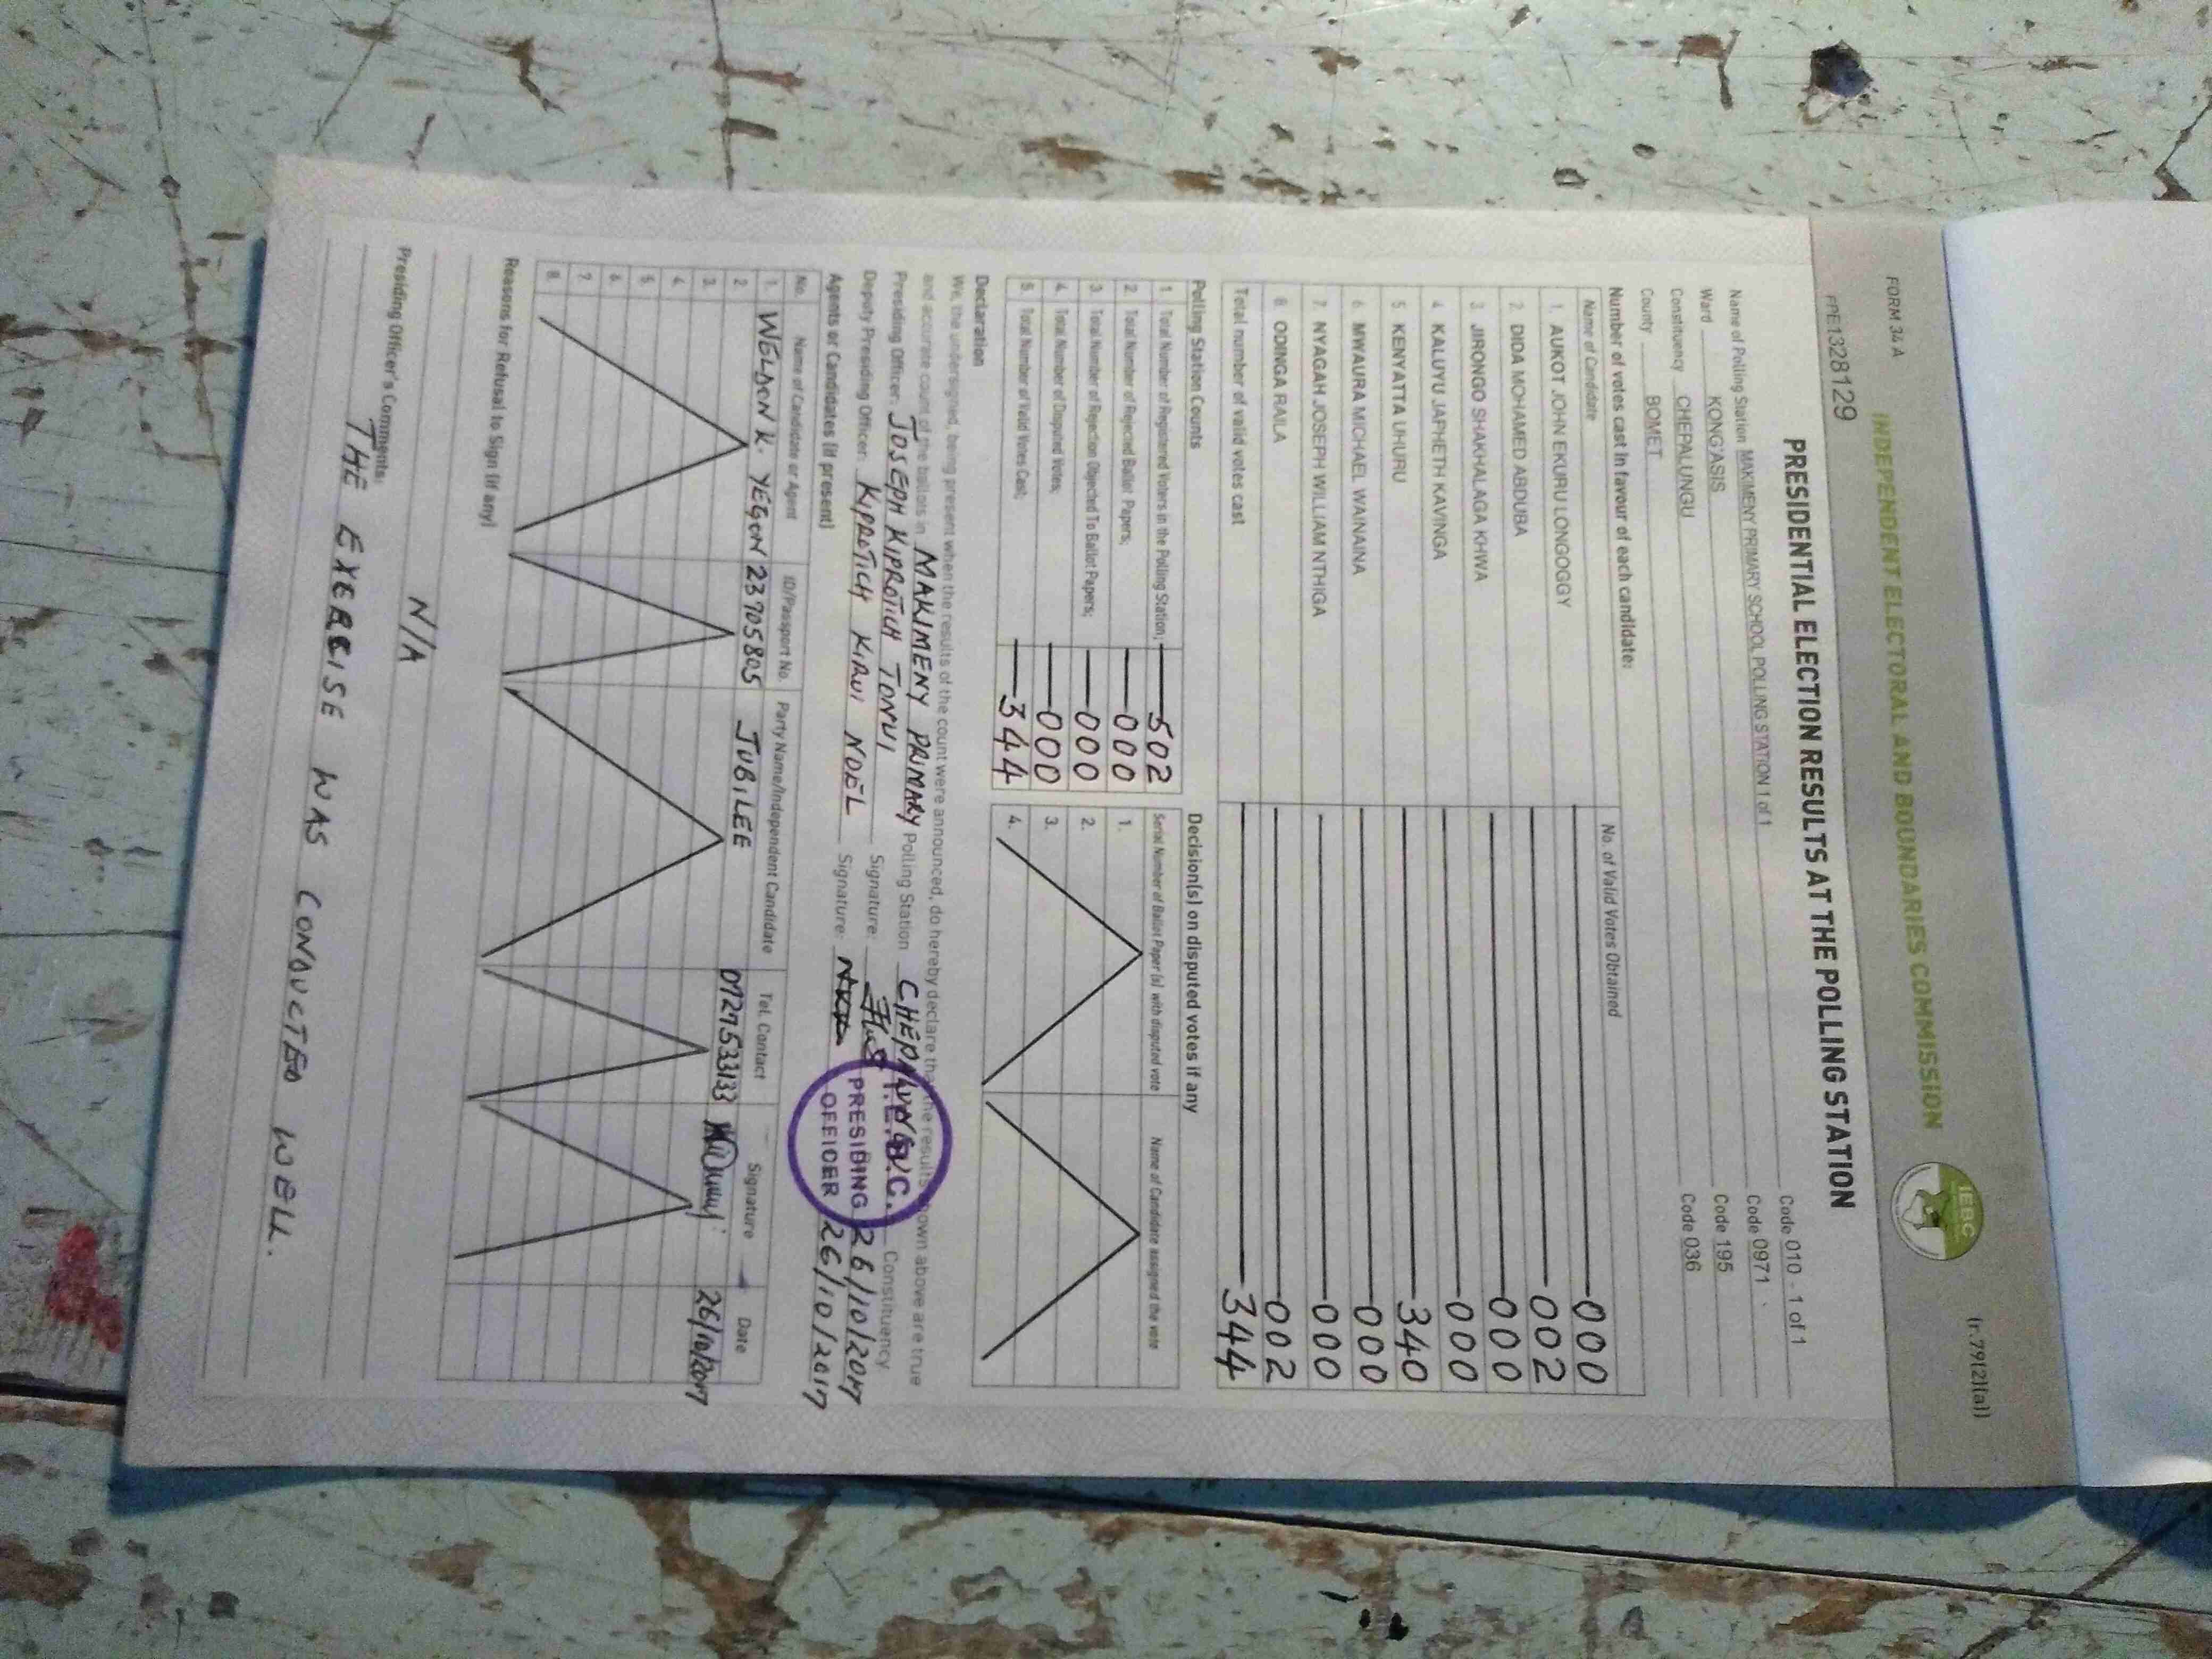 FORM 34 A
(r.79(2)(a))
INDEPENDENT ELECTORAL AND BOUNDARIES COMMISSION
IEBC
PRE1328129
PRESIDENTIAL ELECTION RESULTS AT THE POLLING STATION
Name of Polling Station MAKIMENY PRIMARY SCHOOL POLLING STATION 1 of 1 Code 010 - 1 of 1
Ward KONG'ASIS Code 0971
Constituency CHEPALUNGU Code 195
County BOMET Code 036
Number of votes cast in favour of each candidate:
Name of Candidate No. of Valid Votes Obtained
1. AUKOT JOHN EKURU LONGOGGY 000
2. DIDA MOHAMED ABDUBA 002
3. JIRONGO SHAKHALAGA KHWA 000
4. KALUYU JAPHETH KAVINGA 000
5. KENYATTA UHURU 340
6. MWAURA MICHAEL WAINAINA 000
7. NYAGAH JOSEPH WILLIAM NTHIGA 000
8. ODINGA RAILA 002
Total number of valid votes cast 344
Polling Station Counts
1. Total Number of Registered Voters in the Polling Station; 502
2. Total Number of Rejected Ballot Papers; 000
3. Total Number of Rejection Objected To Ballot Papers; 000
4. Total Number of Disputed Votes; 000
5. Total Number of Valid Votes Cast; 344
Decision(s) on disputed votes if any
Serial Number of Ballot Paper (s) with disputed vote Name of Candidate assigned the vote
1.
2.
3.
4.
Declaration
We, the undersigned, being present when the results of the count were announced, do hereby declare that the results shown above are true
and accurate count of the ballots in MAKIMENY PRIMARY Polling Station CHEPALUNGU Constituency.
Presiding Officer: JOSEPH KIPROTICH TONUI Signature: 26/10/2017
Deputy Presiding Officer: KIPROTICH KIRUI NOEL Signature: 26/10/2017
I.E.B.C.
PRESIDING
OFFICER
Agents or Candidates (if present)
No. Name of Candidate or Agent ID/Passport No. Party Name/Independent Candidate Tel. Contact Signature Date
1. WELDON K. YEGON 23705805 JUBILEE 0727533133 26/10/2017
2.
3.
4.
5.
6.
7.
8.
Reasons for Refusal to Sign (if any)
N/A
Presiding Officer's Comments:
THE EXERCISE WAS CONDUCTED WELL.